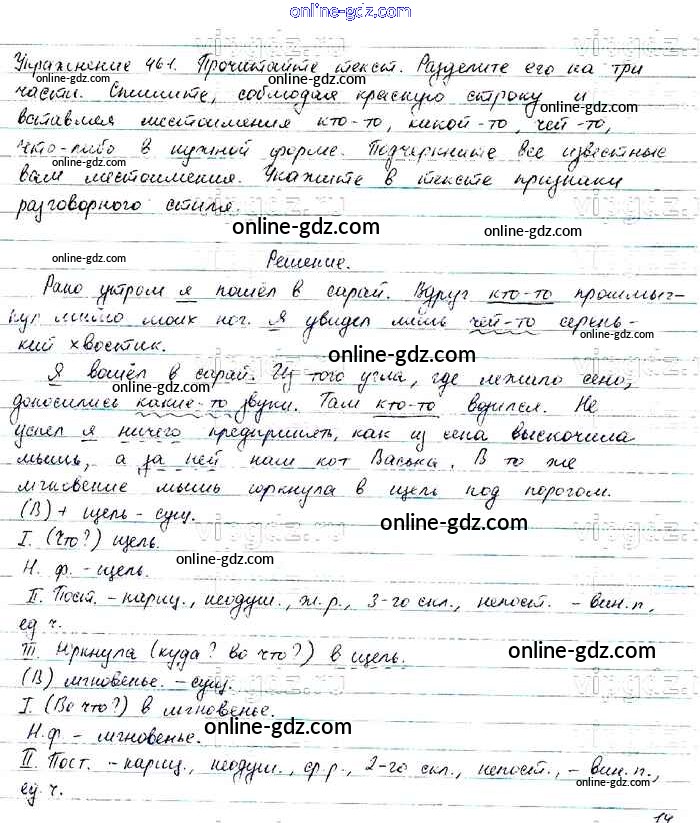 online-gdz.com
Упражнение 461. Прочитайте текст. Разделите его на три
online-gdz.com
online-gdz.com
части. Спишите, соблюдая красную строку и
online-gdz.com
вставляя местоимения кто-то, какой-то, чей-то,
что-либо в нужной форме. Подчеркните все известные
online-gdz.com
вам местоимения. Укажите в тексте признаки
разговорного стиля.
online-gdz.com
online-gdz.com
Решение.
Рано утром я пошёл в сарай. Вдруг кто-то прошмыг-
нул мимо моих ног. Я увидел лишь чей-то серень-
кий хвостик.
online-gdz.com
Я вошёл в сарай. Из того угла, где лежало сено,
online-gdz.com
доносились какие-то звуки. Там кто-то возился. Не
успел я ничего предпринять, как из сена выскочила
мышь, а за ней наш кот Васька. В то же
online-gdz.com
мгновение мышь юркнула в щель под порогом.
(В) + щель - сущ.
online-gdz.com
I. (Что?) щель.
online-gdz.com
Н. ф. - щель.
II. Пост. - нариц., неодуш., ж. р., 3-го скл., непост. - вин. п.,
ед. ч.
III Юркнула (куда? во что?) в щель.
online-gdz.com
(В) мгновенье. - сущ.
I. (Во что?) в мгновенье.
online-gdz.com
Н. ф - мгновенье.
II. Пост. - нариц., неодуш., ср. р., 2-го скл., непост., - вин. п.,
ед. ч.
14